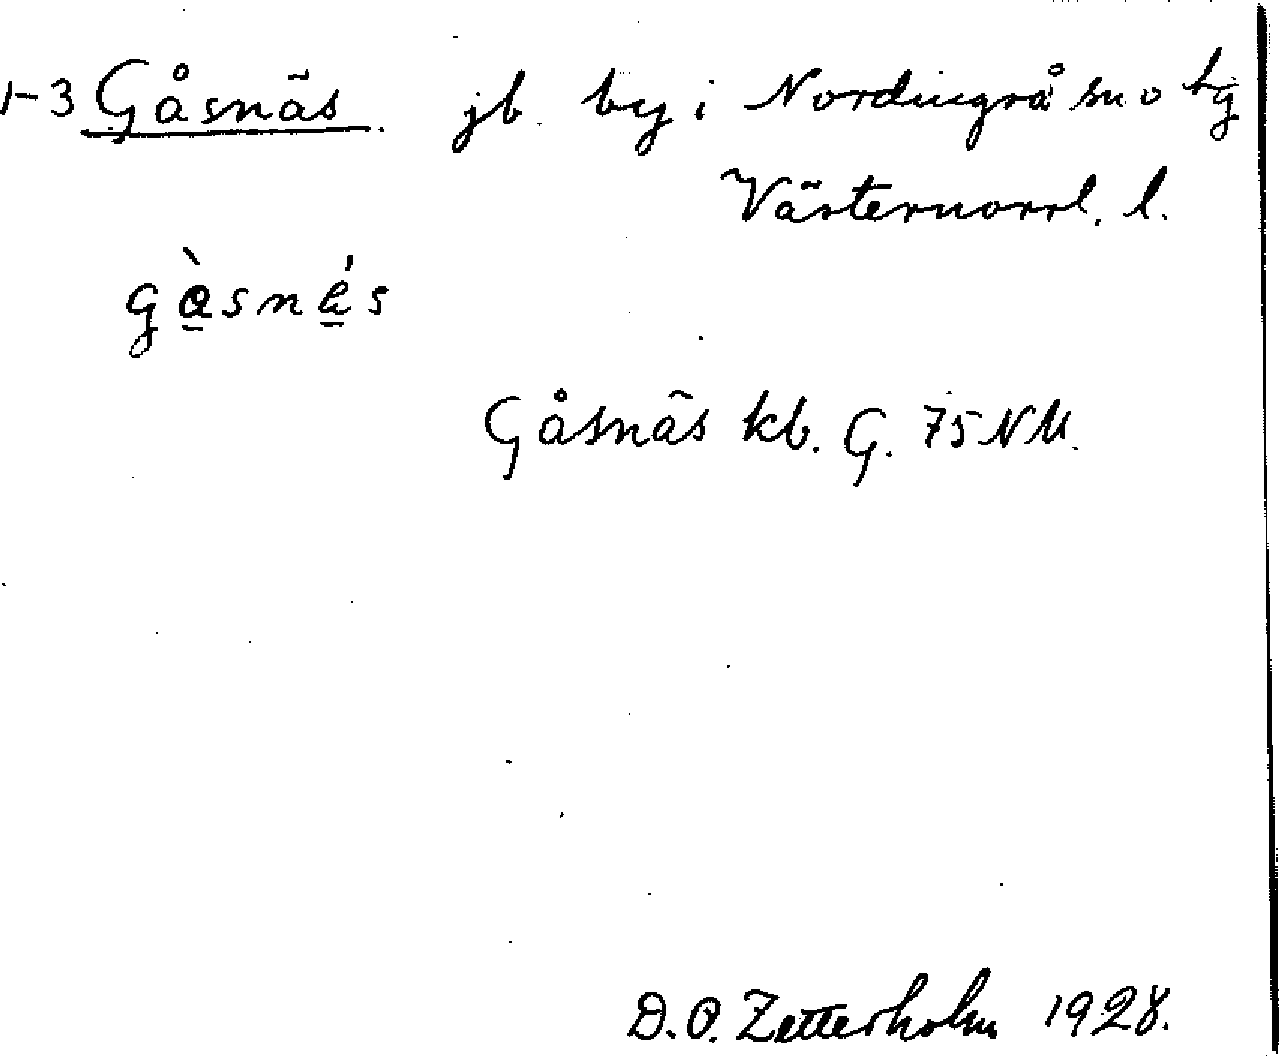 1-3 Gåsnäs jb by i Nordingrå sn o tg
Västernorrl. l.
Gåsnäs kb. G. 75 NM.
D. O. Zetterholm 1928.